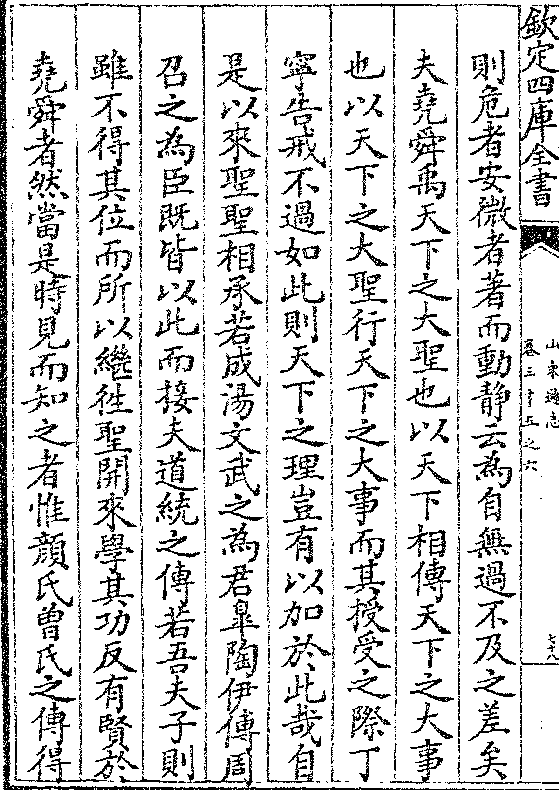 欽定四庫全書
山東通志
卷三十五之六
七十八
則危者安微者著而動静云為自無過不及之差矣
夫堯舜禹天下之大聖也以天下相傳天下之大事
也以天下之大聖行天下之大事而其授受之際丁
寧告戒不過如此則天下之理豈有以加於此哉自
是以來聖聖相承若成湯文武之為君臯陶伊傅周
召之為臣既皆以此而接夫道統之傳若吾夫子則
雖不得其位而所以繼徃聖開來學其功反有賢於
堯舜者然當是時見而知之者惟顔氏曽氏之傳得